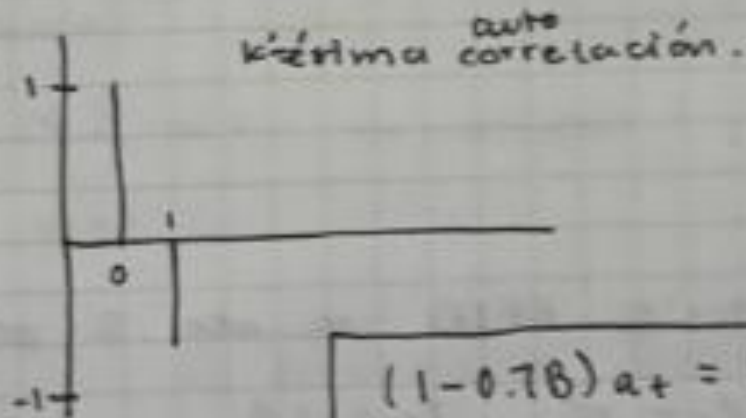 auto
k-ésima correlación.
1
1
0
-1
(1-0.7B) a_t =